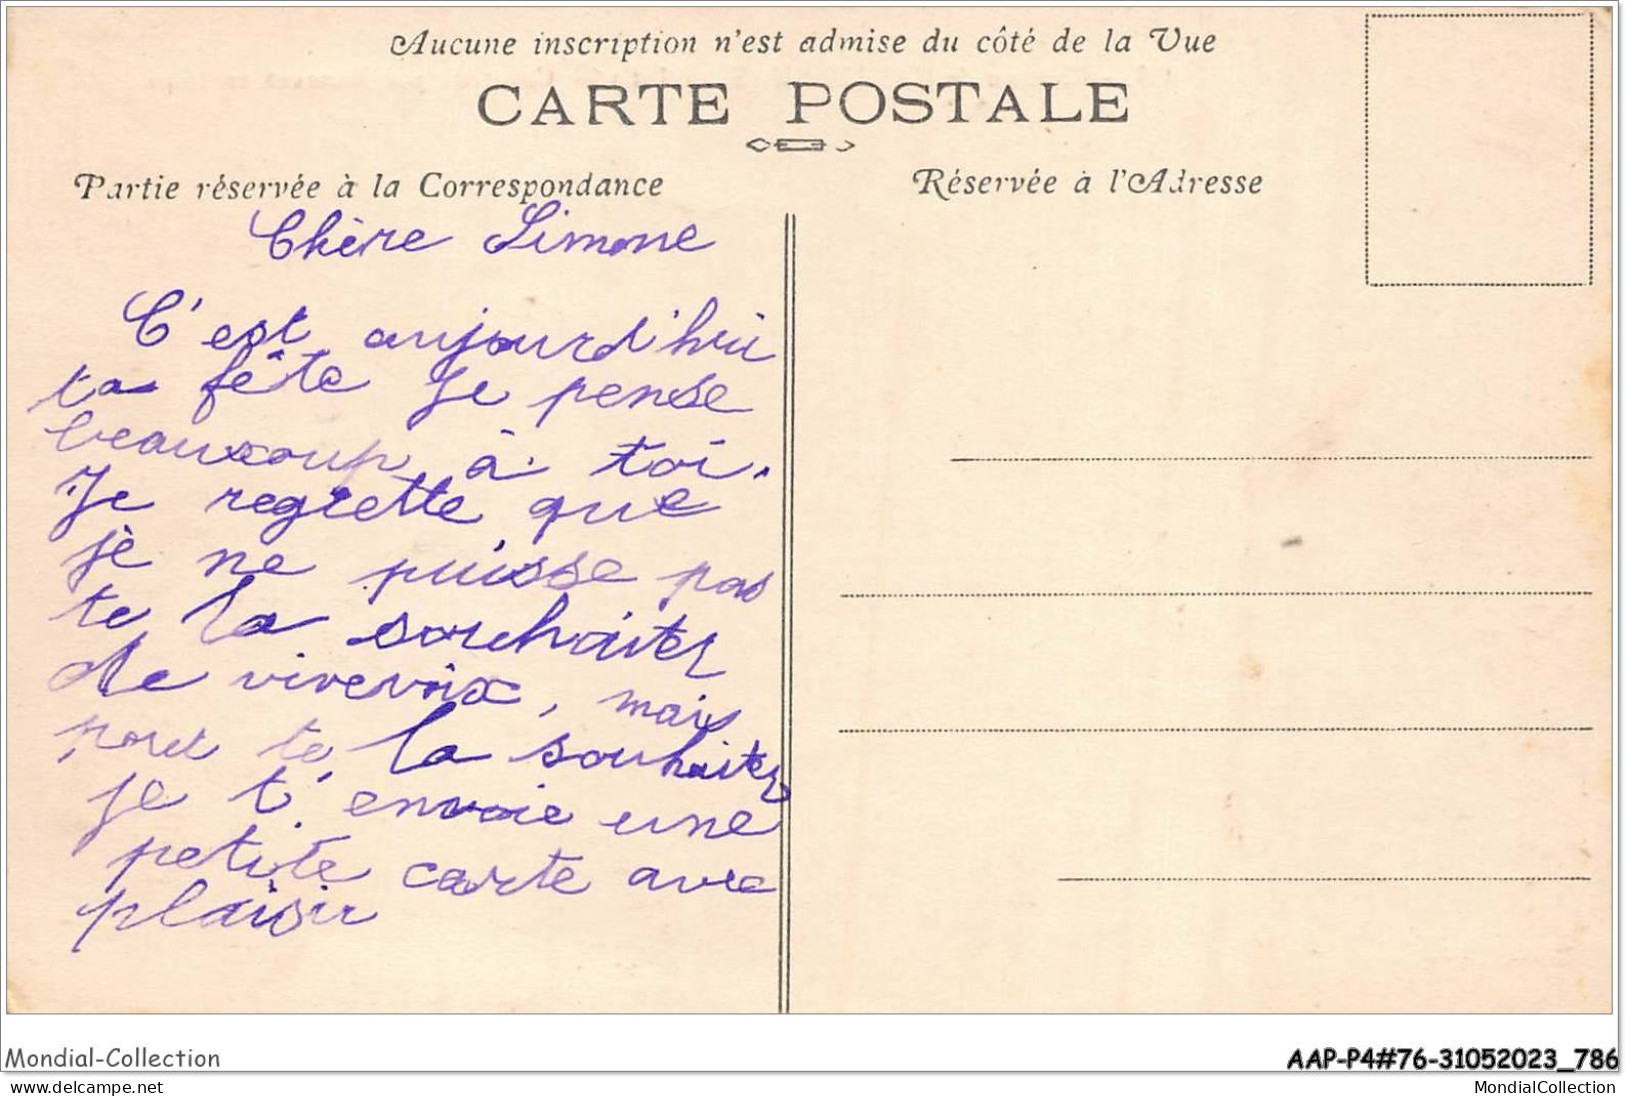 Aucune inscription n'est admise du côté de la Vue
CARTE POSTALE
Partie réservée à la Correspondance
Réservée à l'Adresse
Chère Simone
C'est aujourd'hui
ta fête Je pense
beaucoup à toi.
Je regrette que
je ne puisse pas
te la souhaiter
de vivevoix, mais
pour te la souhaiter
je t'envoie une
petite carte avec
plaisir
Mondial-Collection
AAP-P4#76-31052023_786
www.delcampe.net
MondialCollection